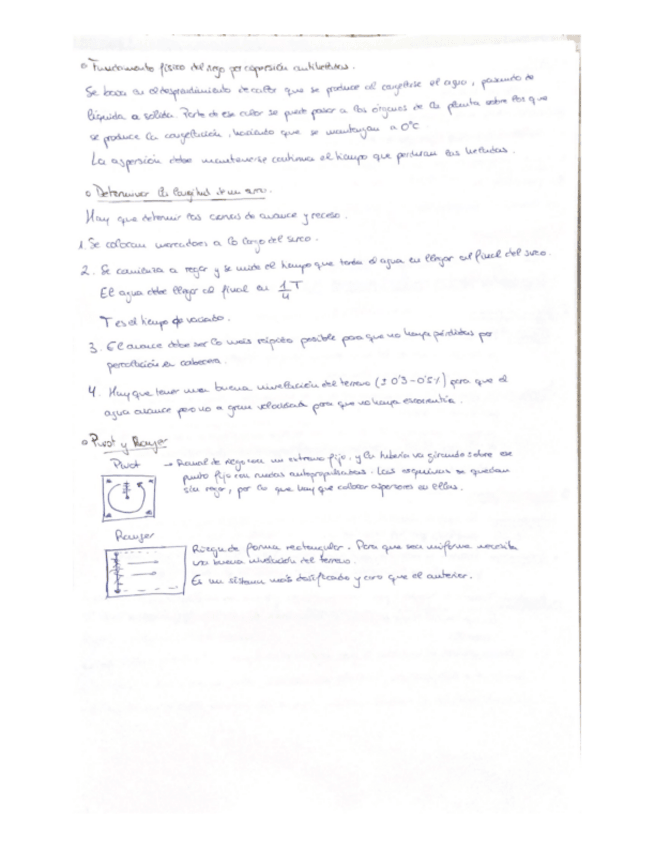 o Fundamento físico del riego por aspersión antiheladas.
Se basa en el desprendimiento de calor que se produce al congelarse el agua, pasando de
líquida a sólida. Parte de ese calor se puede pasar a los órganos de la planta sobre los que
se produce la congelación, haciendo que se mantengan a 0ºC
La aspersión debe mantenerse continua el tiempo que perduran las heladas.
o Determinar la longitud de un surco.
Hay que determinar las curvas de avance y receso.
1. Se colocan marcadores a lo largo del surco.
2. Se comienza a regar y se mide el tiempo que tarda el agua en llegar al final del surco.
El agua debe llegar al final en 1/4 T
T es el tiempo de vaciado.
3. El avance debe ser lo más rápido posible para que no haya pérdidas por
percolación en cabecera.
4. Hay que tener una buena nivelación del terreno (± 0'3-0'5%) para que el
agua avance pero no a gran velocidad para que no haya escorrentía.
o Pivot y Ranger
Pivot → Ramal de riego con un extremo fijo, y la tubería va girando sobre ese
punto fijo con ruedas autopropulsadas. Las esquinas se quedan
sin regar, por lo que hay que colocar aspersores en ellas.
Ranger
Riego de forma rectangular. Para que sea uniforme necesita
una buena nivelación del terreno.
Es un sistema más y caro que el anterior.